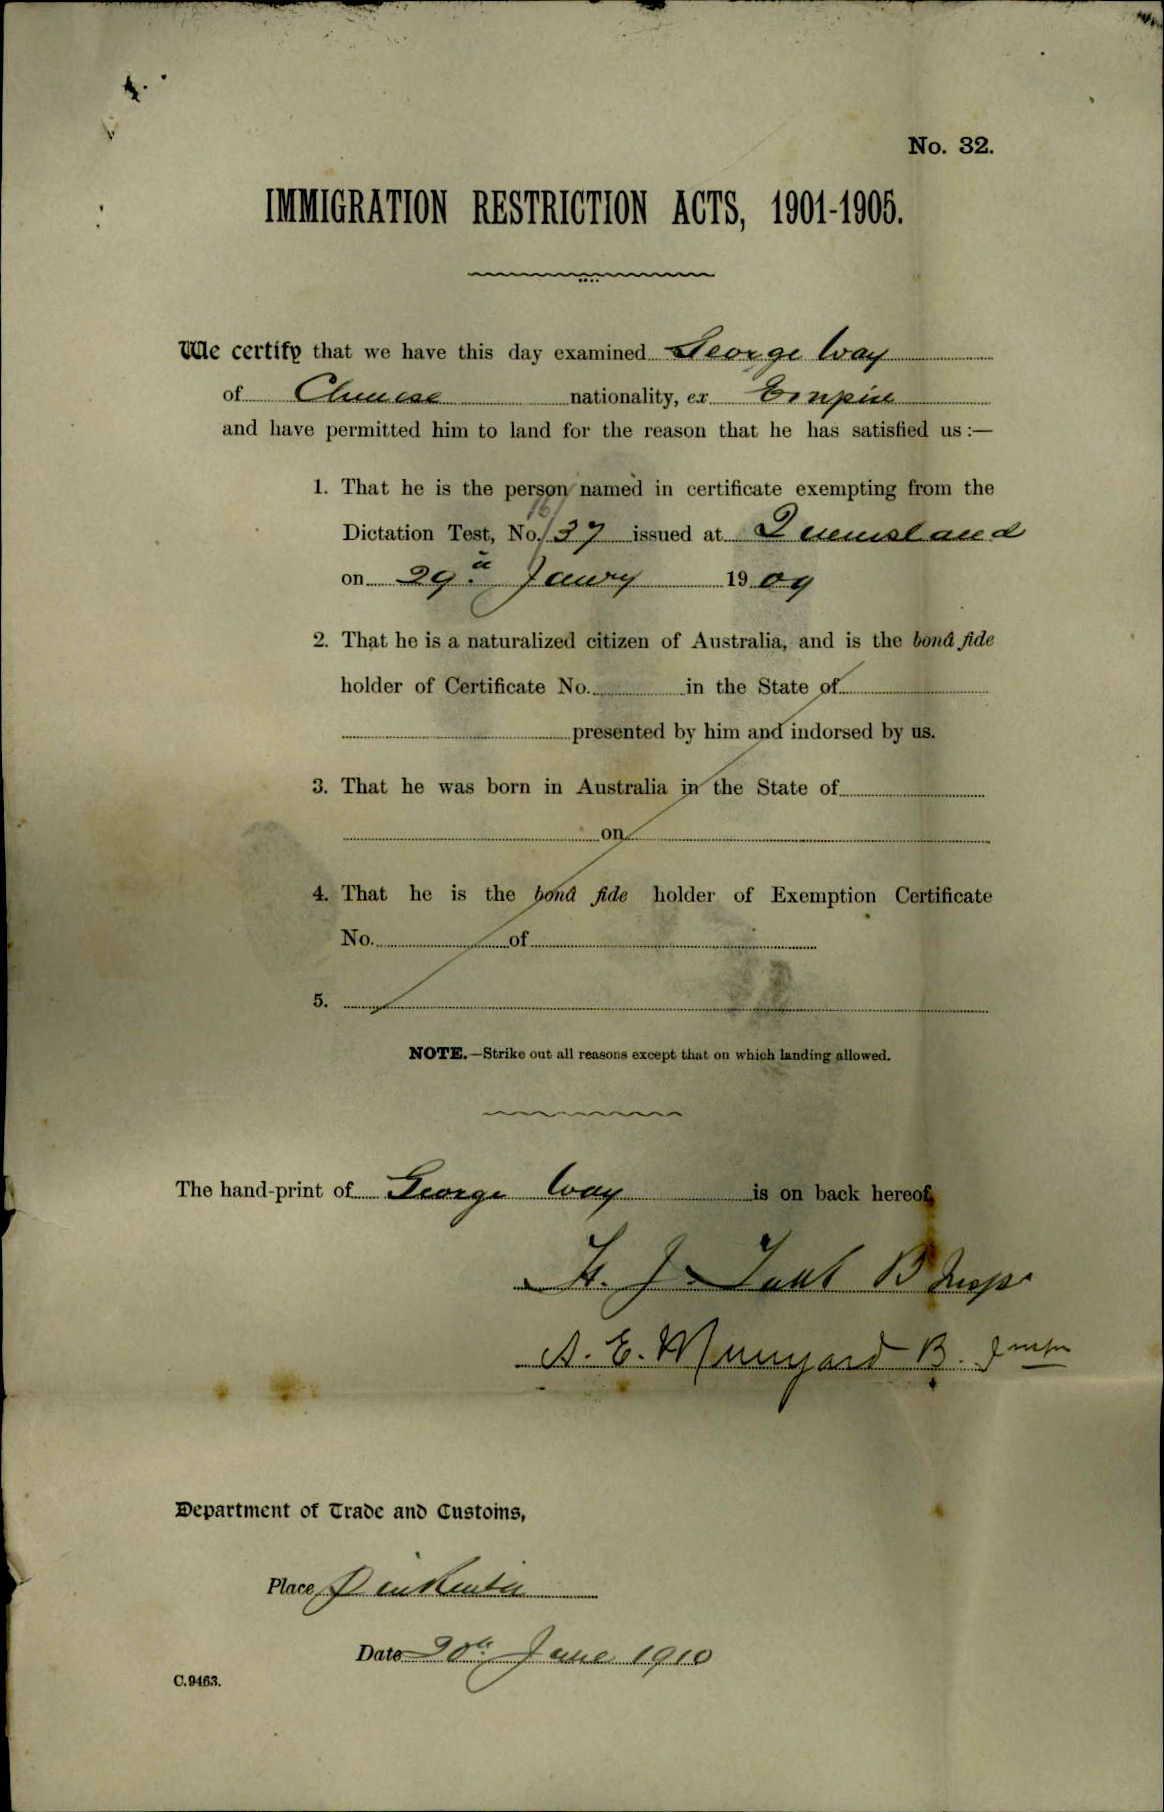 No. 32.
IMMIGRATION RESTRICTION ACTS, 1901-1905.
We certify that we have this day examined George Way
of Chinese nationality, ex Empire
and have permitted him to land for the reason that he has satisfied us :—
1. That he is the person named in certificate exempting from the
Dictation Test, No. 16/37 issued at Queensland
on 29th Janry 1909
2. That he is a naturalized citizen of Australia, and is the bonâ fide
holder of Certificate No. in the State of
presented by him and indorsed by us.
3. That he was born in Australia in the State of
on
4. That he is the bonâ fide holder of Exemption Certificate
No. of
5.
NOTE.—Strike out all reasons except that on which landing allowed.
The hand-print of George Way is on back hereof.
J. B Insp.
A. E. Munyard B.
Department of Trade and Customs,
Place Pinkenba
Date 20th June 1910
C.9463.